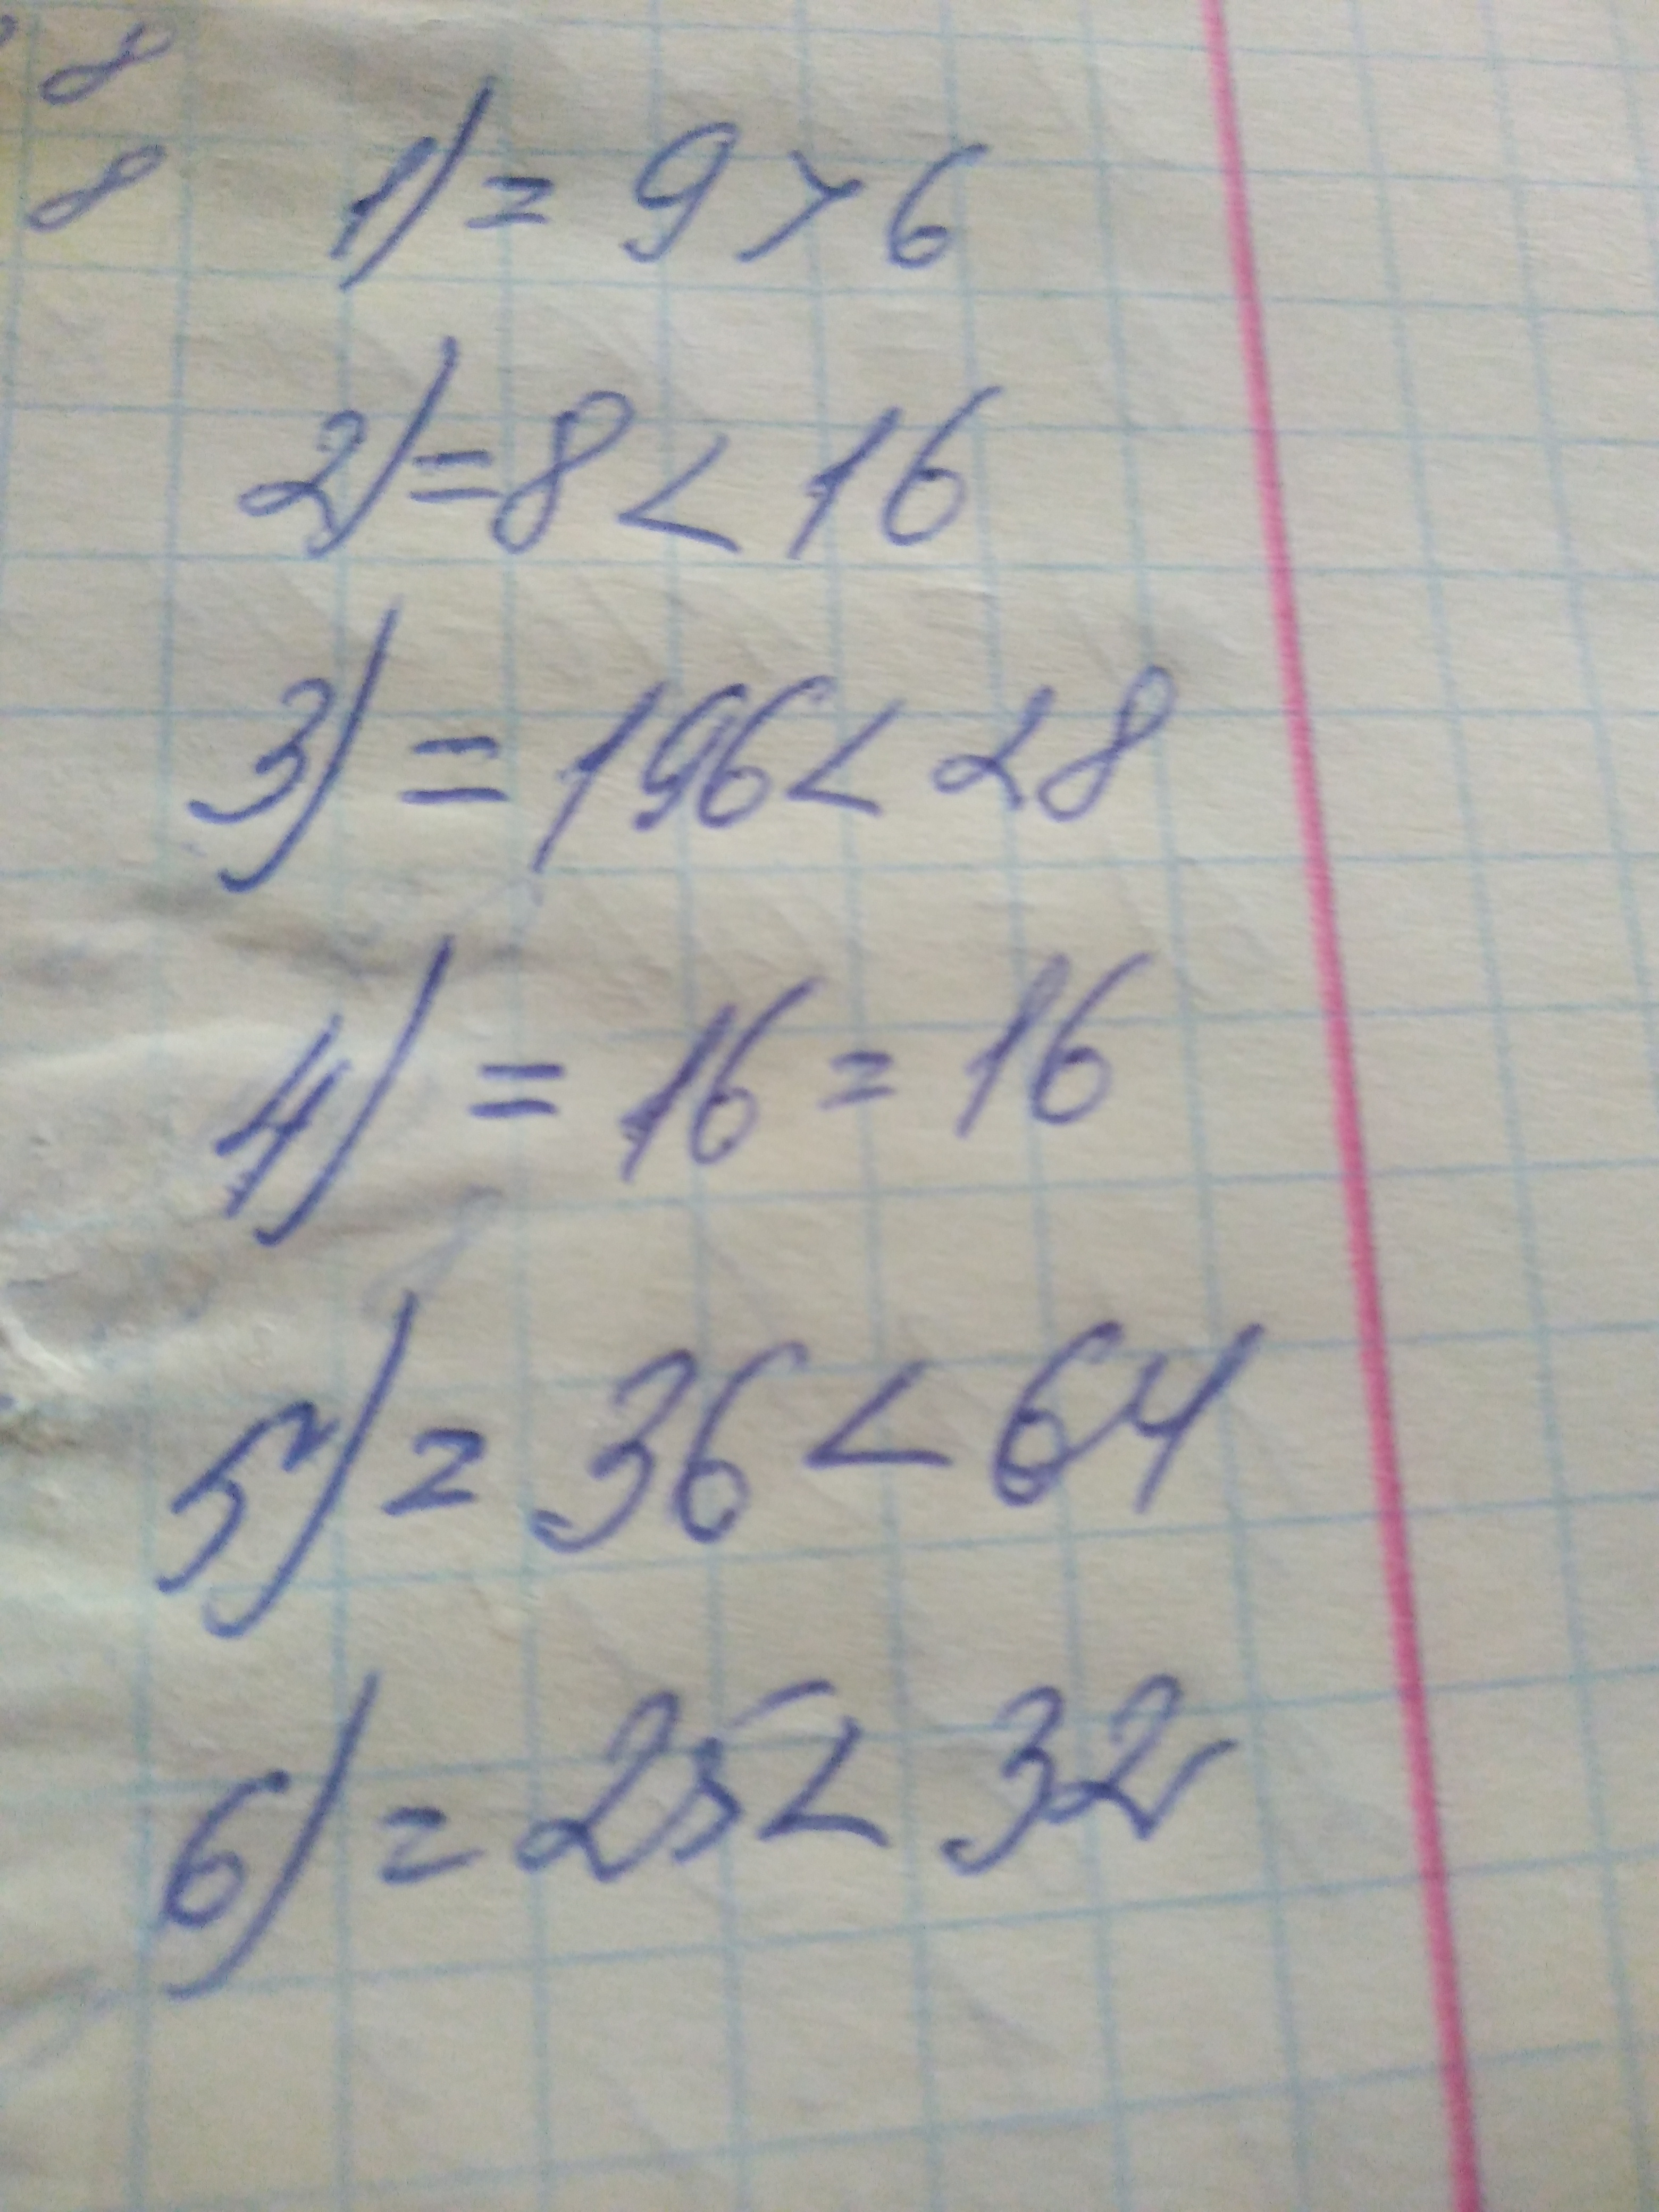 8
8
1) = 9 > 6
2) = 8 < 16
3) = 196 < 28
4) = 16 = 16
5) = 36 < 64
6) = 25 < 32